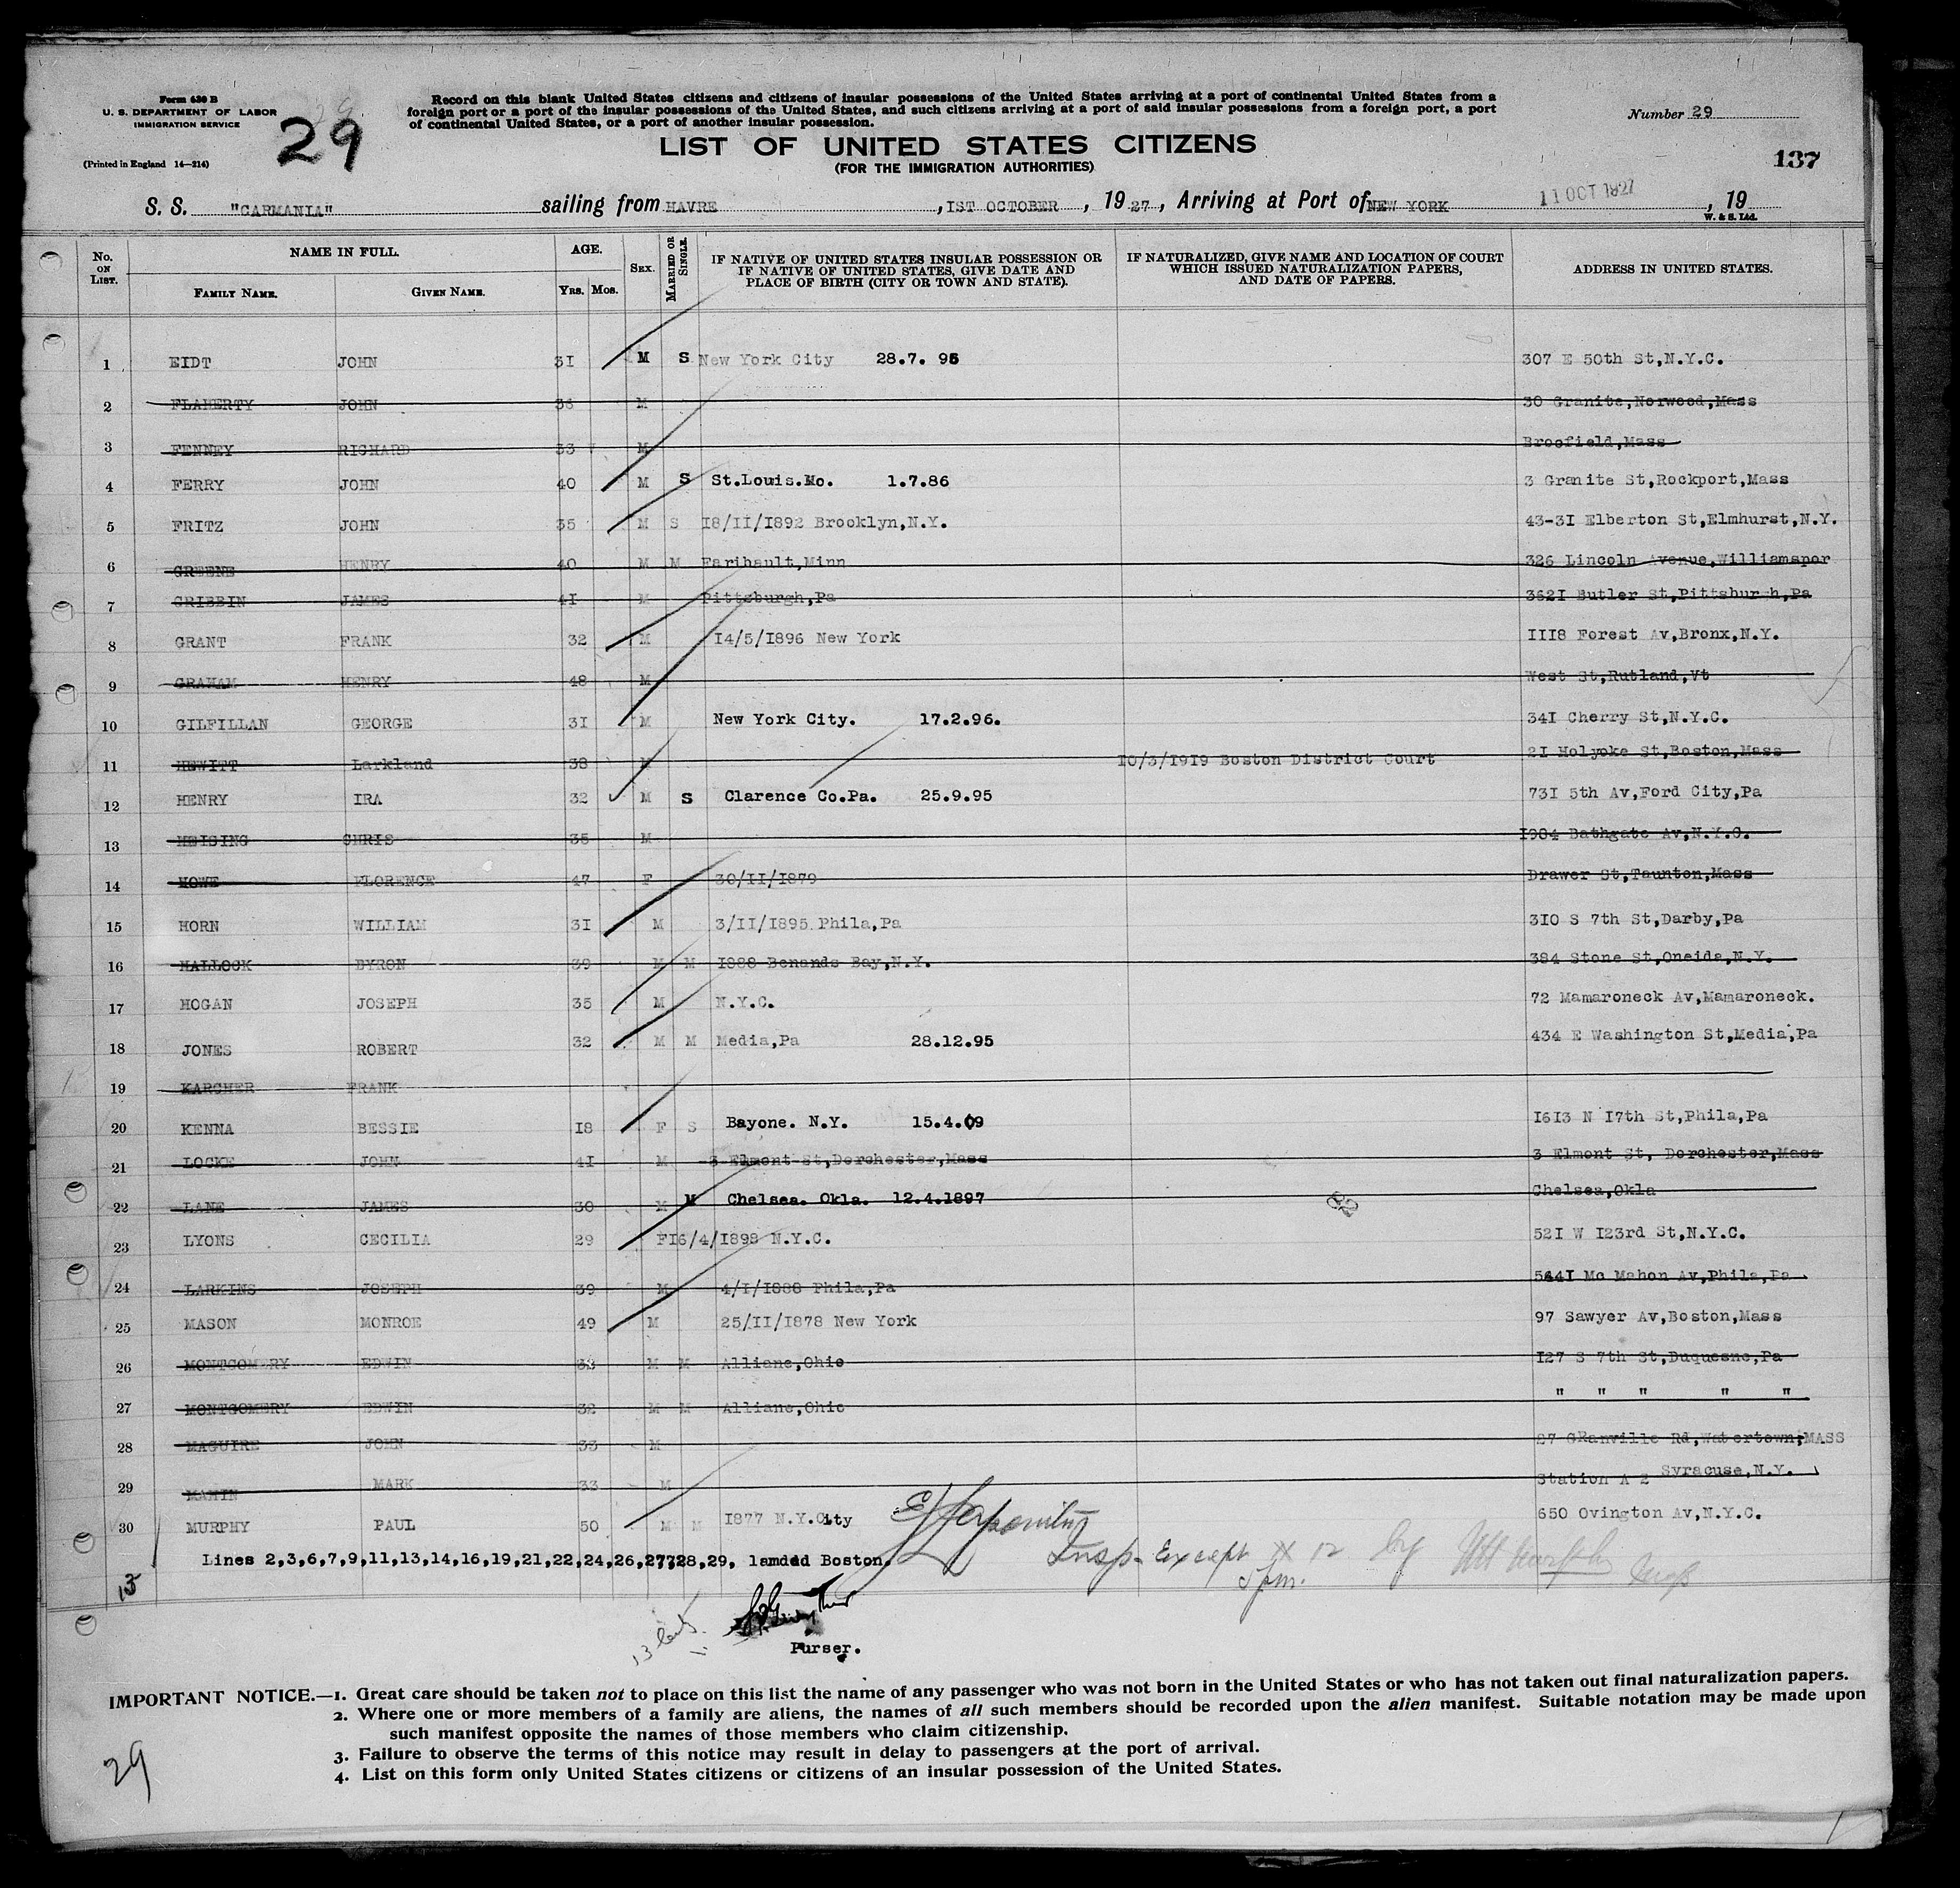 Form 630 B
U. S. DEPARTMENT OF LABOR
IMMIGRATION SERVICE
(Printed in England 14—214)
29
Record on this blank United States citizens and citizens of insular possessions of the United States arriving at a port of continental United States from a
foreign port or a port of the insular possessions of the United States, and such citizens arriving at a port of said insular possessions from a foreign port, a port
of continental United States, or a port of another insular possession.
Number 29
137
LIST OF UNITED STATES CITIZENS
(FOR THE IMMIGRATION AUTHORITIES)
S. S. "CARMANIA" sailing from HAVRE, IST OCTOBER, 1927, Arriving at Port of NEW YORK 11 OCT 1927, 19
W. & S. Ltd.
No. ON LIST. NAME IN FULL. FAMILY NAME. GIVEN NAME. AGE. YRS. MOS. SEX. MARRIED OR SINGLE. IF NATIVE OF UNITED STATES INSULAR POSSESSION OR IF NATIVE OF UNITED STATES, GIVE DATE AND PLACE OF BIRTH (CITY OR TOWN AND STATE). IF NATURALIZED, GIVE NAME AND LOCATION OF COURT WHICH ISSUED NATURALIZATION PAPERS, AND DATE OF PAPERS. ADDRESS IN UNITED STATES.
1 EIDT JOHN 3I M S New York City 28.7. 96 307 E 50th St,N.Y.C.
2 FLAHERTY JOHN 36 M 30 Granite,Norwood,Mass
3 FENNEY RICHARD 33 M Brocfield,Mass
4 FERRY JOHN 40 M S St.Louis.Mo. 1.7.86 3 Granite St,Rockport,Mass
5 FRITZ JOHN 35 M S I8/II/I892 Brooklyn,N.Y. 43-3I Elberton St,Elmhurst,N.Y.
6 GREENE HENRY 40 M M Faribault,Minn 326 Lincoln Avenue,Williamspor
7 GRIBBIN JAMES 4I M Pittsburgh,Pa 362I Butler St,Pittsburgh,Pa
8 GRANT FRANK 32 M I4/5/I896 New York III8 Forest Av,Bronx,N.Y.
9 GRAHAM HENRY 48 M West St,Rutland,Vt
10 GILFILLAN GEORGE 3I M New York City. 17.2.96. 34I Cherry St,N.Y.C.
11 HEWITT Larkland 38 M I0/3/I9I9 Boston District Court 2I Holyoke St,Boston,Mass
12 HENRY IRA 32 M S Clarence Co.Pa. 25.9.95 73I 5th Av,Ford City,Pa
13 HEISING CHRIS 35 M I984 Bathgate Av,N.Y.C.
14 HOWE FLORENCE 47 F 30/II/I879 Drawer St,Taunton,Mass
15 HORN WILLIAM 3I M 3/II/I895 Phila,Pa 3I0 S 7th St,Darby,Pa
16 HALLOCK BYRON 39 M M I888 Benands Bay,N.Y. 384 Stone St,Oneida,N.Y.
17 HOGAN JOSEPH 35 M N.Y.C. 72 Mamaroneck Av,Mamaroneck.
18 JONES ROBERT 32 M M Media,Pa 28.12.95 434 E Washington St,Media,Pa
19 KARCHER FRANK
20 KENNA BESSIE I8 F S Bayone. N.Y. 15.4.09 I6I3 N I7th St,Phila,Pa
21 LOCKE JOHN 4I M 3 Elmont St,Dorchester,Mass 3 Elmont St, Dorchester,Mass
22 LANE JAMES 30 M M Chelsea. Okla. 12.4.1897 Chelsea,Okla
23 LYONS CECILIA 29 F I6/4/I898 N.Y.C. 52I W I23rd St,N.Y.C.
24 LARKINS JOSEPH 39 M 4/I/I888 Phila,Pa 544I Mc Mahon Av,Phila,Pa
25 MASON MONROE 49 M 25/II/I878 New York 97 Sawyer Av,Boston,Mass
26 MONTGOMERY EDWIN 33 M M Alliane,Ohio I27 S 7th St,Duquesne,Pa
27 MONTGOMERY EDWIN 32 M M Alliane,Ohio " " " " "
28 MAGUIRE JOHN 33 M 27 GRanville Rd,Watertown;MASS
29 MAMIN MARK 33 M Station A 2 Syracuse,N.Y.
30 MURPHY PAUL 50 M M I877 N.Y.City 650 Ovington Av,N.Y.C.
Lines 2,3,6,7,9,11,13,14,16,19,21,22,24,26,27728,29, lamded Boston.
Insp. Except # 12 by
Insp
5 pm.
13
Purser.
IMPORTANT NOTICE.—1. Great care should be taken not to place on this list the name of any passenger who was not born in the United States or who has not taken out final naturalization papers.
2. Where one or more members of a family are aliens, the names of all such members should be recorded upon the alien manifest. Suitable notation may be made upon
such manifest opposite the names of those members who claim citizenship.
3. Failure to observe the terms of this notice may result in delay to passengers at the port of arrival.
4. List on this form only United States citizens or citizens of an insular possession of the United States.
29